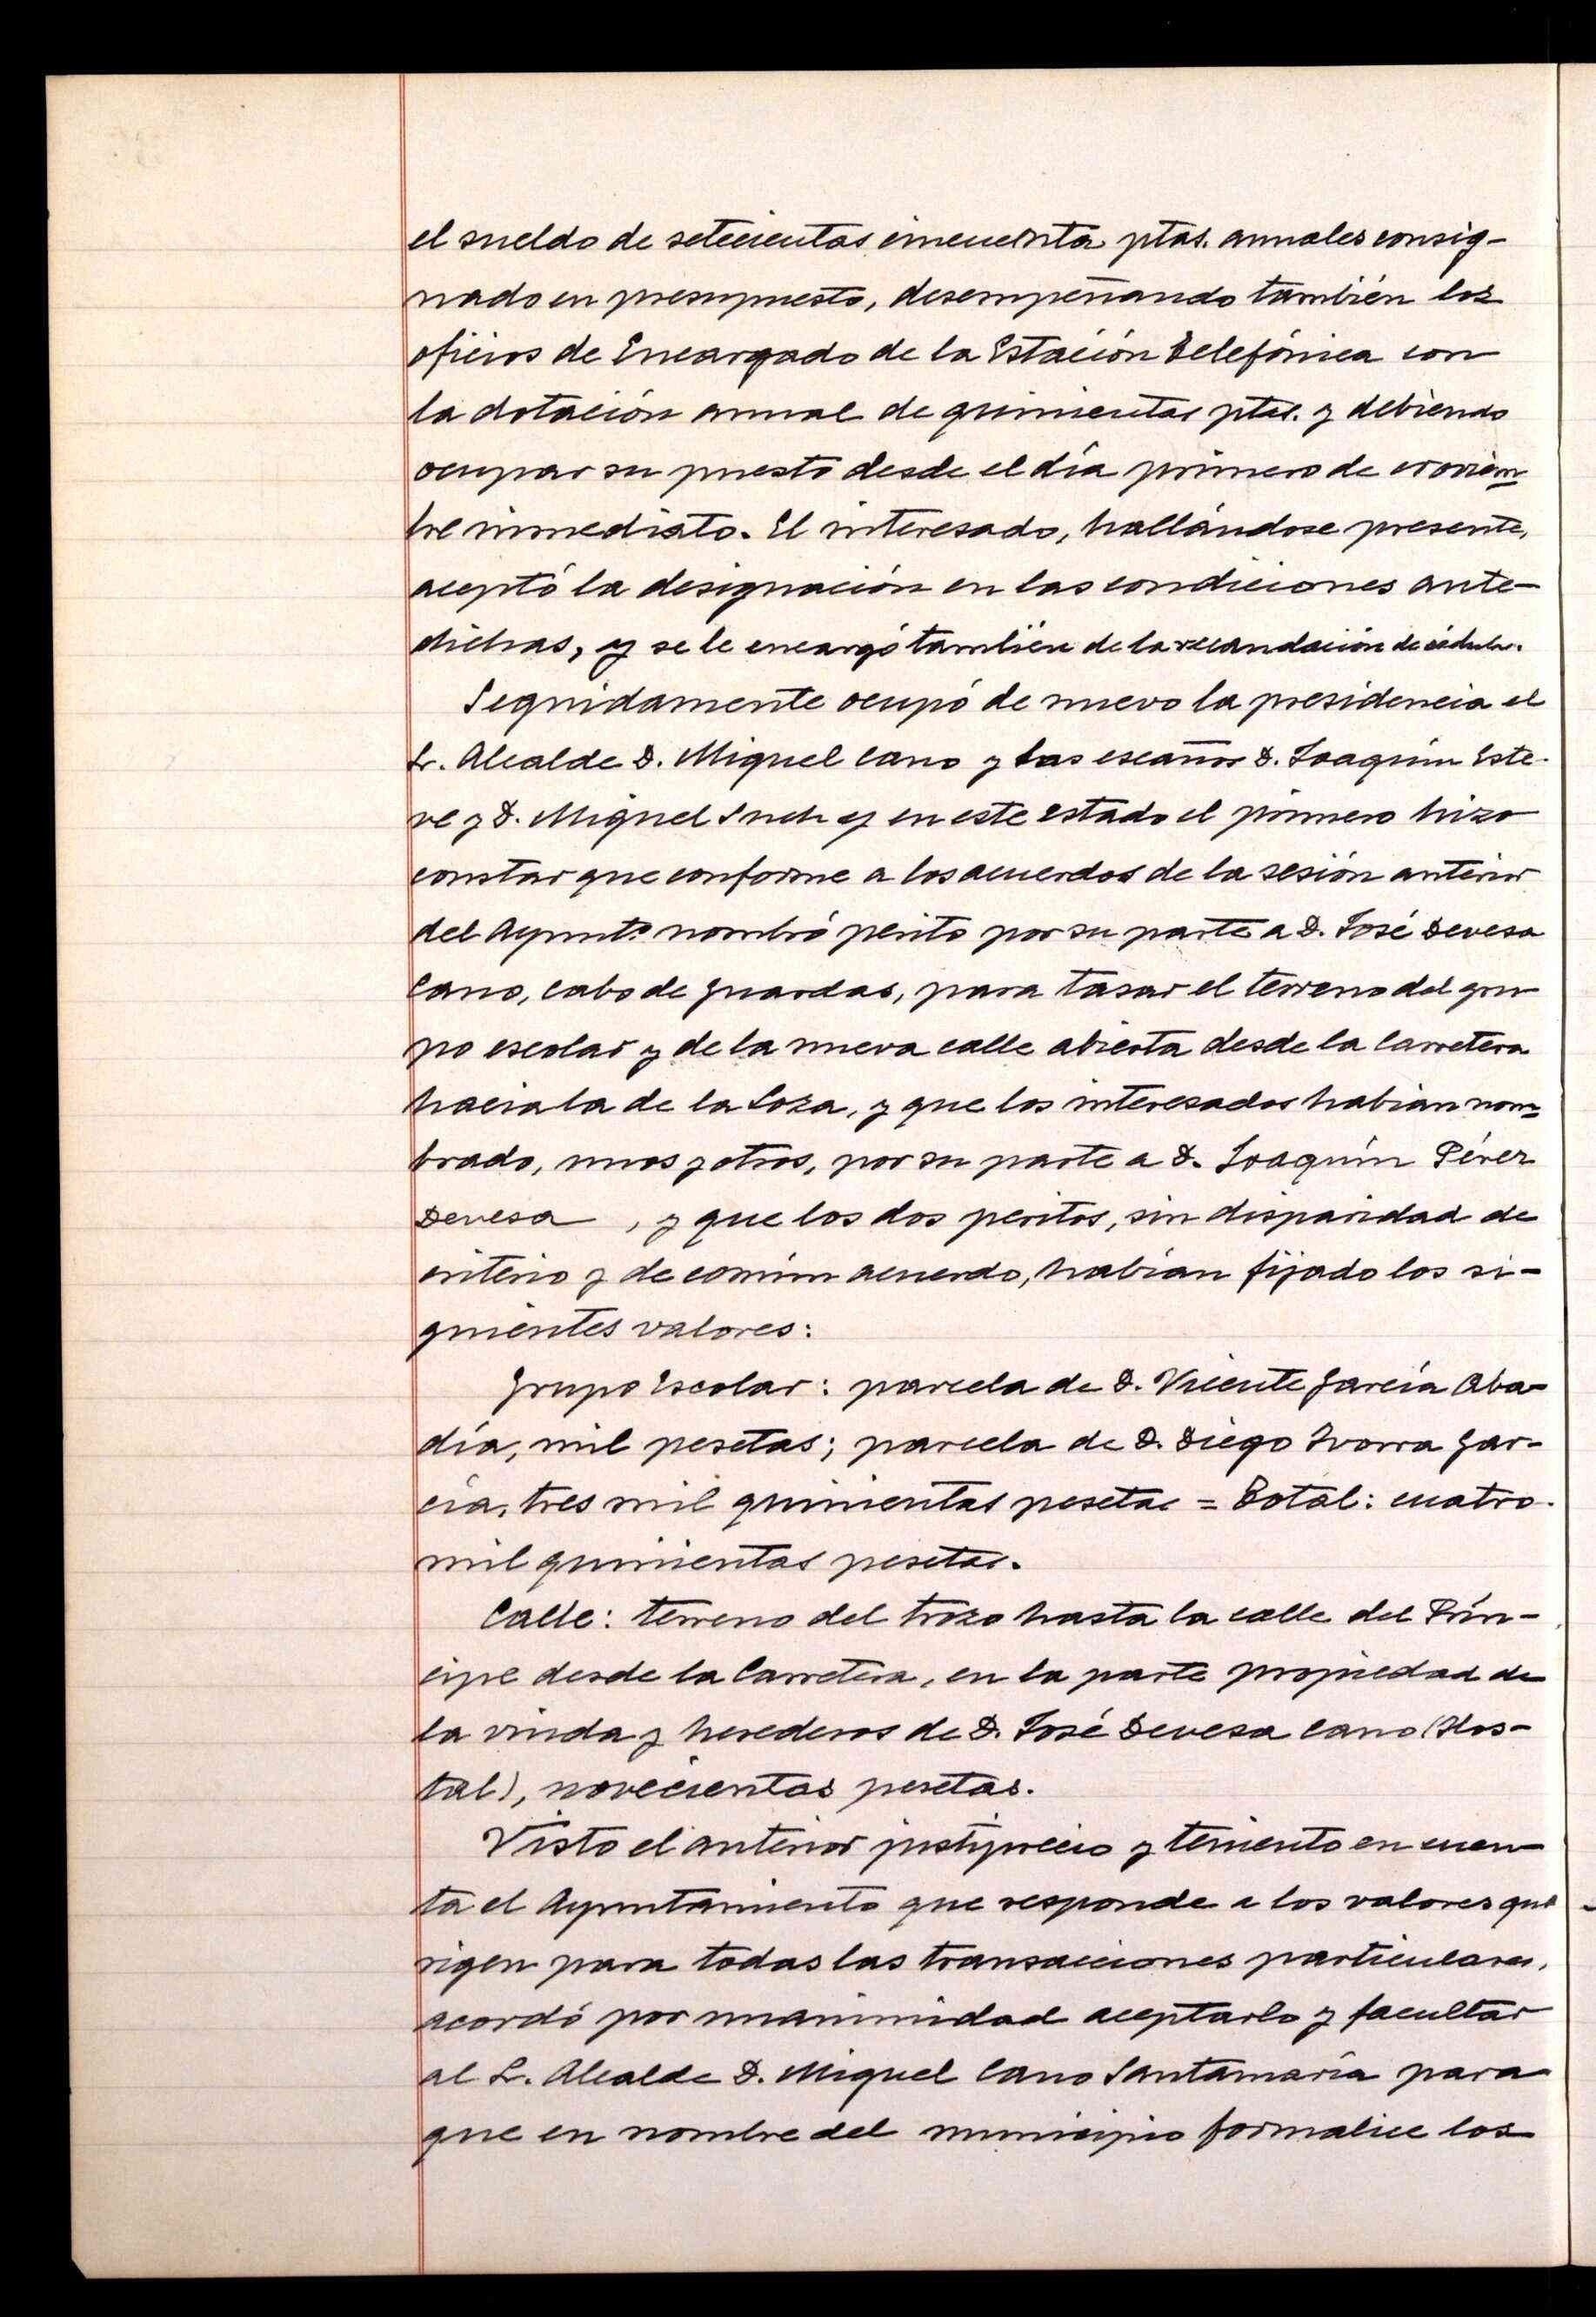 el sueldo de setecientas cincuenta ptas. anuales consig-
nado en presupuesto, desempeñando también los
oficios de Encargado de la Estación Telefónica con
la dotación anual de quinientas ptas. y debiendo
ocupar su puesto desde el día primero de noviem-
bre inmediato. El interesado, hallándose presente,
aceptó la designación en las condiciones ante-
dichas, y se le encargó también de la recaudación de cédulas.
Seguidamente ocupó de nuevo la presidencia el
Sr. Alcalde D. Miguel Cano y los escaños D. Joaquín Este-
ve y D. Miguel Such y en este estado el primero hizo
constar que conforme a los acuerdos de la sesión anterior
del Ayuntº nombró perito por su parte a D. José Devesa
Cano, cabo de guardas, para tasar el terreno del gru
po escolar y de la nueva calle abierta desde la carretera
hacia la de la Loza, y que los interesados habían nom-
brado, unos y otros, por su parte a D. Joaquín Pérez
Devesa , y que los dos peritos, sin disparidad de
criterio y de común acuerdo, habían fijado los si-
guientes valores:
Grupo Escolar: parcela de D. Vicente García Aba-
día, mil pesetas; parcela de D. Diego Ivorra Gar-
cía, tres mil quinientas pesetas = Total: cuatro
mil quinientas pesetas.
Calle: terreno del trozo hasta la calle del Prín-
cipe desde la Carretera, en la parte propiedad de
la viuda y herederos de D. José Devesa Cano (Hos-
tal), novecientas pesetas.
Visto el anterior justiprecio y teniento en cuen-
ta el Ayuntamiento que responde a los valores que
rigen para todas las transacciones particulares,
acordó por unanimidad aceptarlo y facultar
al Sr. Alcalde D. Miguel Cano Santamaría para
que en nombre del municipio formalice los